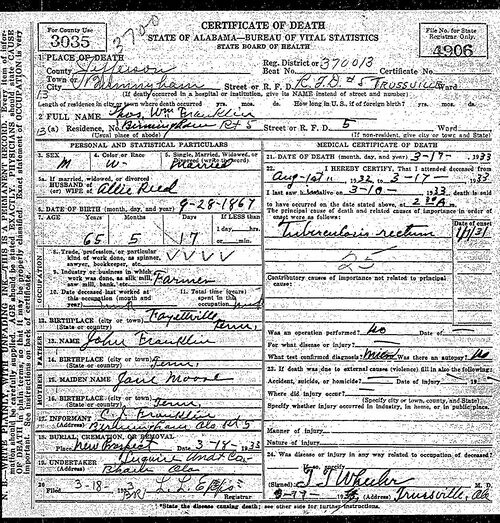 For County Use
3035
3700
CERTIFICATE OF DEATH
STATE OF ALABAMA—BUREAU OF VITAL STATISTICS
STATE BOARD OF HEALTH
File No. for State Registrar Only
4906
1 PLACE OF DEATH
Reg. District or 370013
County Jefferson Beat No. Certificate No.
Town or City Birmingham Street or R. F. D. R.F.D #5 Trussville Ward
(If death occurred in a hospital or institution, give its NAME instead of street and number)
Length of residence in city or town where death occurred yrs. mos. ds. How long in U. S., if of foreign birth? yrs. mos. ds.
2 FULL NAME Thos. Wm Franklin
(a) Residence, No. Birmingham Rt 5 Street or R. F. D. 5 Ward
(Usual place of abode) (If non-resident, give city or town and State)
PERSONAL AND STATISTICAL PARTICULARS
3. SEX M
4. Color or Race W
5. Single, Married, Widowed, or Married
If married, widowed, or divorced
HUSBAND of (or) WIFE of Allie Reed
6. DATE OF BIRTH (month, day, and year) 9-28-1867
7. AGE Years 65 Months 5 Days 17 If LESS than 1 day, hrs. or min.
8. Trade, profession, or particular kind of work done, as spinner, sawyer, bookkeeper, etc.
9. Industry or business in which work was done, as silk mill, saw mill, bank, etc. Farmer
10. Date deceased last worked at this occupation (month and year)
11. Total time (years) spent in this occupation
12. BIRTHPLACE (city or town) Fayettville
(State or country) Tenn.
13. NAME John Franklin
14. BIRTHPLACE (city or town)
(State or country) Tenn.
15. MAIDEN NAME Jane Moore
16. BIRTHPLACE (city or town)
(State or country) Tenn
17. INFORMANT C. J. Franklin
(Address) Birmingham Ala Rt 5
18. BURIAL, CREMATION, OR REMOVAL
Place New Prospect Date 3-18-1933
19. UNDERTAKER
(Address) Ala
20 Filed 3-18-1933 Registrar
MEDICAL CERTIFICATE OF DEATH
21. DATE OF DEATH (month, day, and year) 3-17-1933
22. I HEREBY CERTIFY, That I attended deceased from
Aug-1st 1932 to 3-17-1933
I last saw h alive on 3-10-1933 death is said
to have occurred on the date stated above, at 2 30 A m.
The principal cause of death and related causes of importance in order of onset were as follows:
Tuberculosis rectum 1/1/31
25
Contributory causes of importance not related to principal cause:
Was an operation performed? No Date of
For what disease or injury?
What test confirmed diagnosis? Was there an autopsy? No
23. If death was due to external causes (violence) fill in also the following:
Accident, suicide, or homicide? Date of injury 19
Where did injury occur?
(Specify city or town, county, and State)
Specify whether injury occurred in industry, in home, or in public place.
Manner of injury
Nature of injury
24. Was disease or injury in any way related to occupation of deceased?
If so, specify
(Signed) J J Wheeler M. D.
(Address) Trussville, Ala
*State the disease causing death; see other side for further instructions.